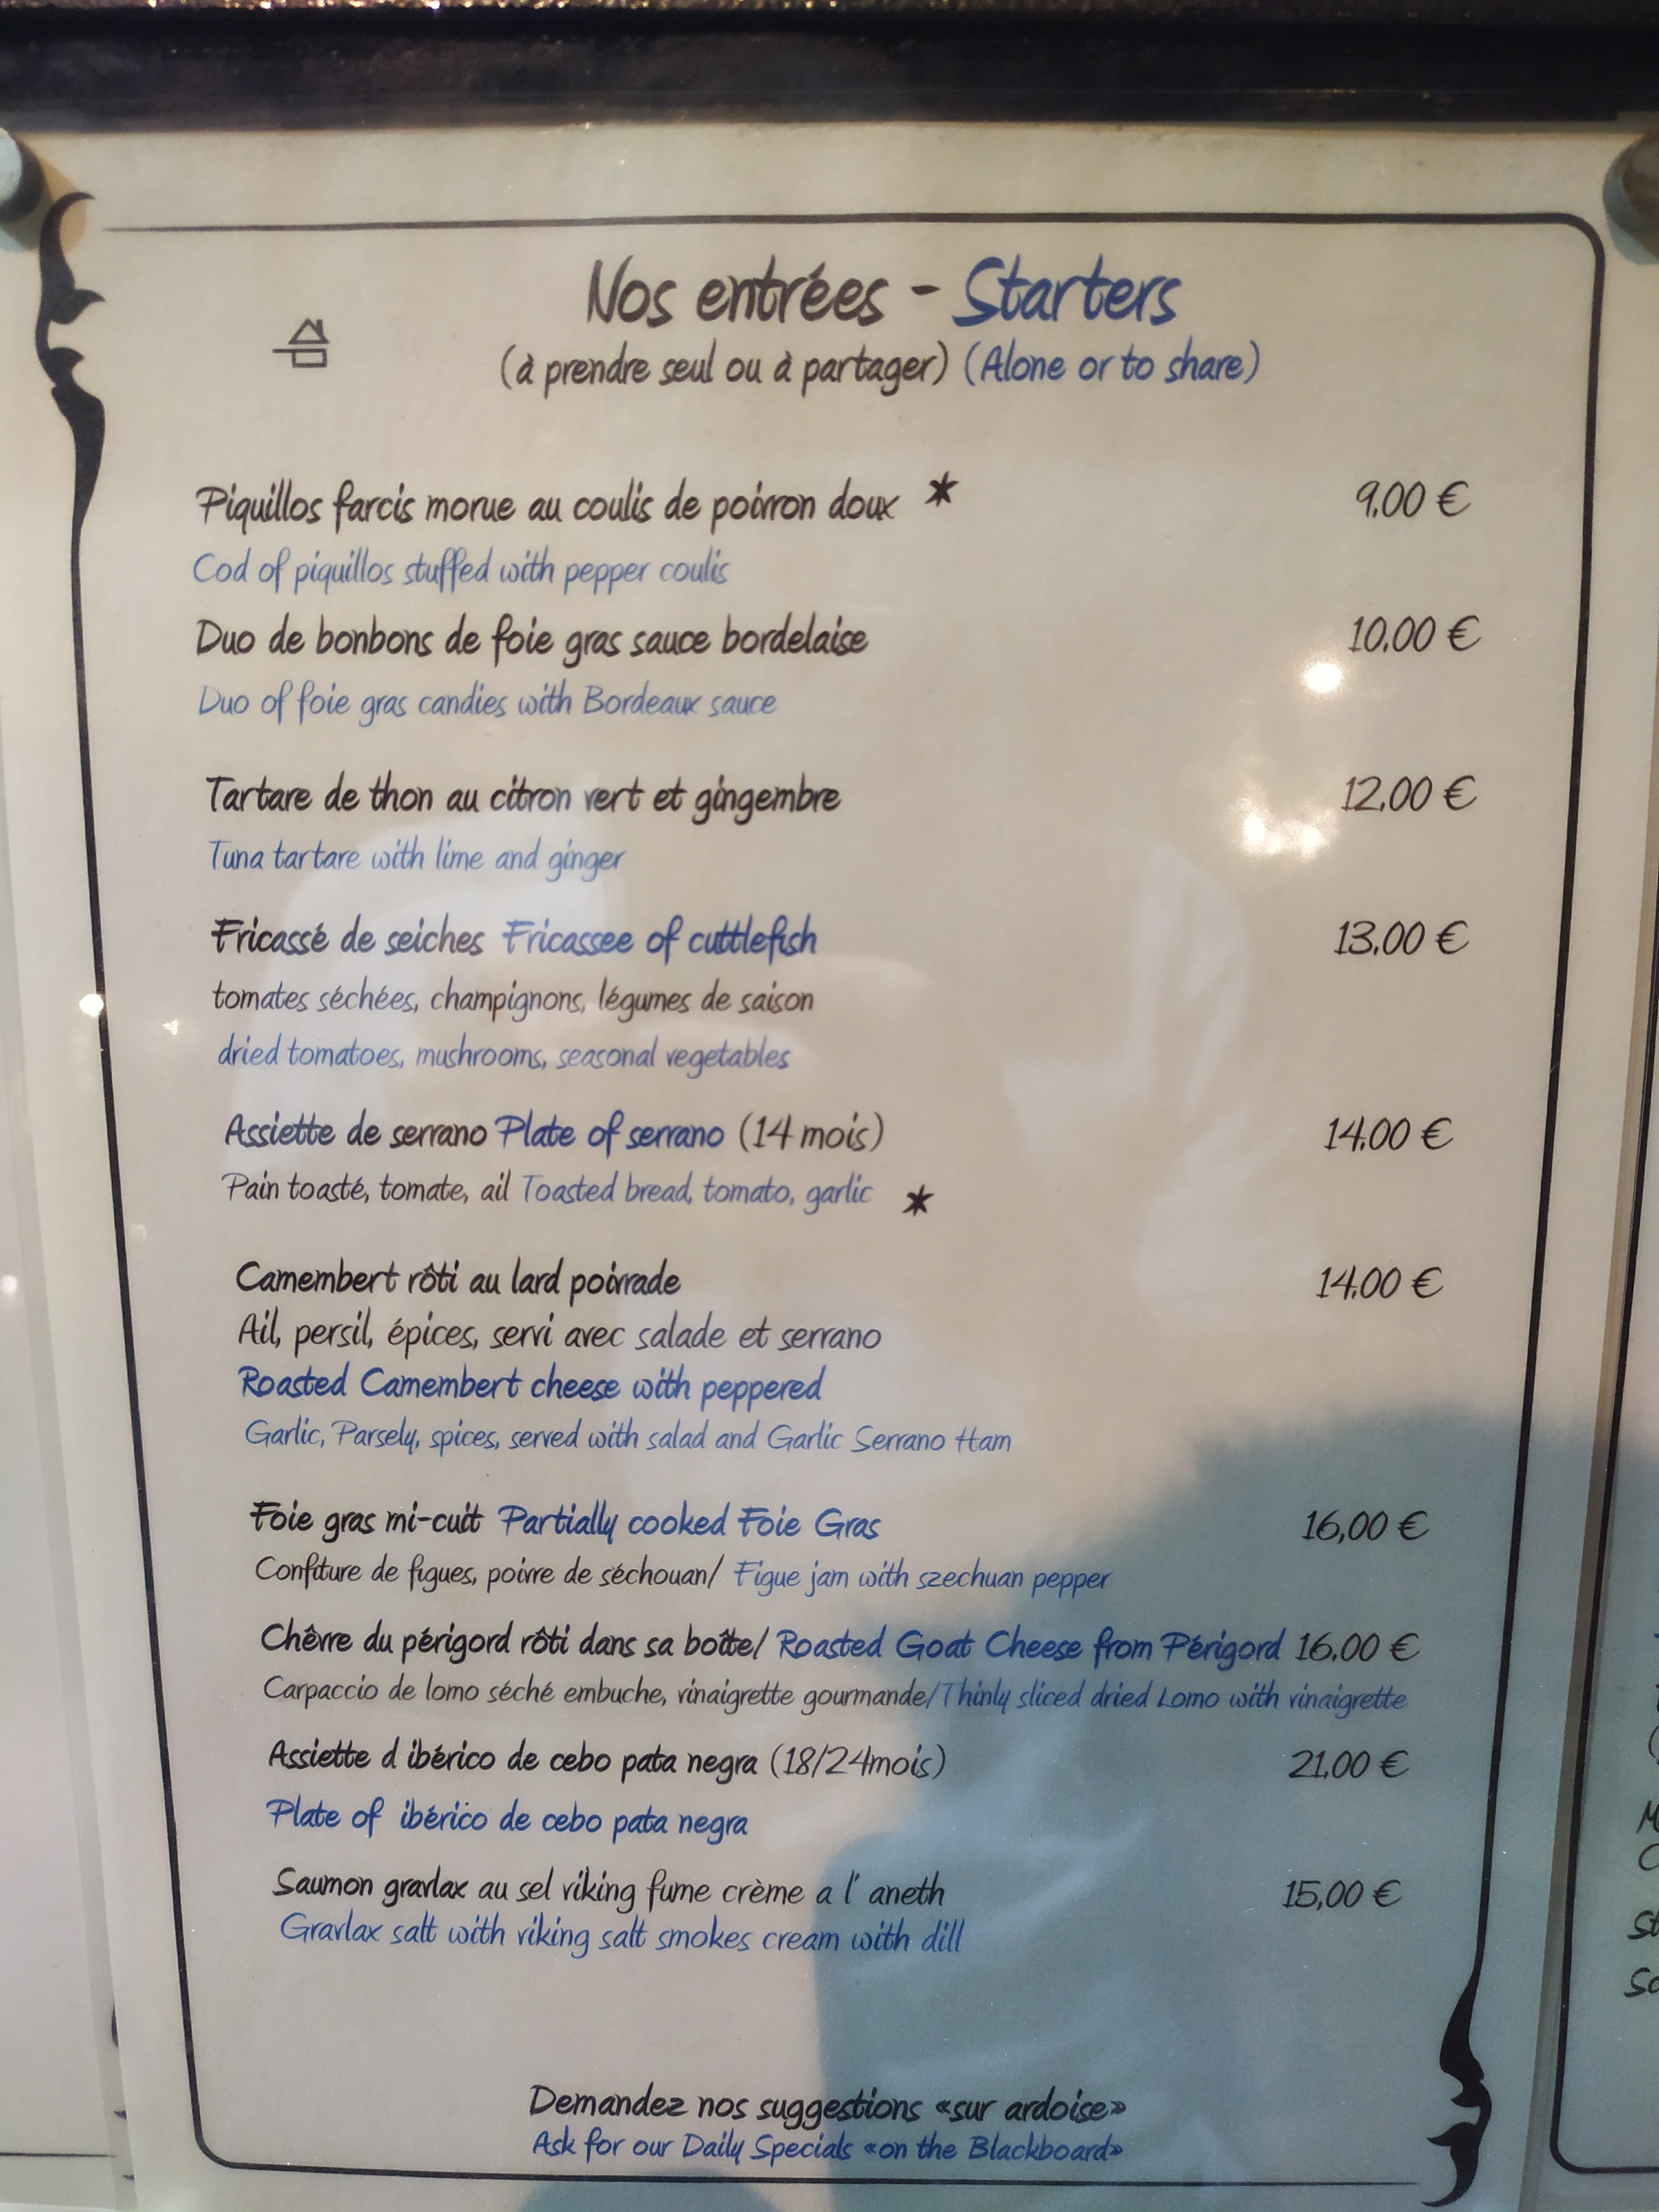 Nos entrées - Starters
(à prendre seul ou à partager) (Alone or to share)
Piquillos farcis morue au coulis de poivron doux * 9.00 €
Cod of piquillos stuffed with pepper coulis
Duo de bonbons de foie gras sauce bordelaise 10.00 €
Duo of foie gras candies with Bordeaux sauce
Tartare de thon au citron vert et gingembre 12.00 €
Tuna tartare with lime and ginger
Fricassé de seiches Fricassee of cuttlefish 13.00 €
tomates séchées, champignons, légumes de saison
dried tomatoes, mushrooms, seasonal vegetables
Assiette de serrano Plate of serrano (14 mois) 14.00 €
Pain toasté, tomate, ail Toasted bread, tomato, garlic *
Camembert rôti au lard poivrade 14.00 €
Ail, persil, épices, servi avec salade et serrano
Roasted Camembert cheese with peppered
Garlic, Parsely, spices, served with salad and Garlic Serrano Ham
Foie gras mi-cuit Partially cooked Foie Gras 16,00 €
Confiture de figues, poivre de séchouan/ Figue jam with szechuan pepper
Chêvre du périgord rôti dans sa boîte/ Roasted Goat Cheese from Périgord 16.00 €
Carpaccio de lomo séché embuche, vinaigrette gourmande/Thinly sliced dried Lomo with vinaigrette
Assiette d ibérico de cebo pata negra (18/24mois) 21.00 €
Plate of ibérico de cebo pata negra
Saumon gravlax au sel viking fume crème a l' aneth 15,00 €
Gravlax salt with viking salt smokes cream with dill
Demandez nos suggestions «sur ardoise»
Ask for our Daily Specials «on the Blackboard»